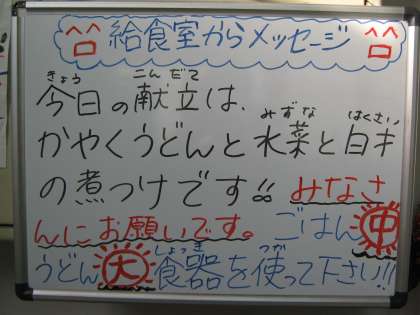 給食室からメッセージ
きょう こんだて
今日の献立は、
みずな はくさい
かやくうどんと水菜と白才
の煮つけです!! みなさ
んにお願いです。ごはん中
しょっき つか
うどん大食器を使って下さい!!